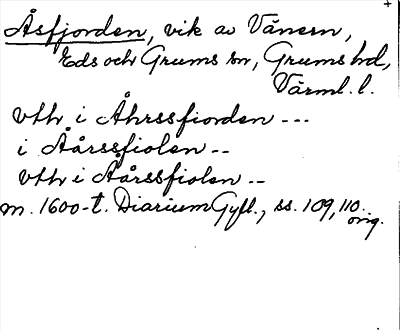 Åsfjorden, vik av Vänern,
Eds och Grums sn, Grums hd,
Värml. l.
vthi i Åhrssfiorden ---
i Åårssfiolen --
vthi i Åårssfiolen --
m. 1600-t. Diarium Gyll., ss. 109, 110.
orig.